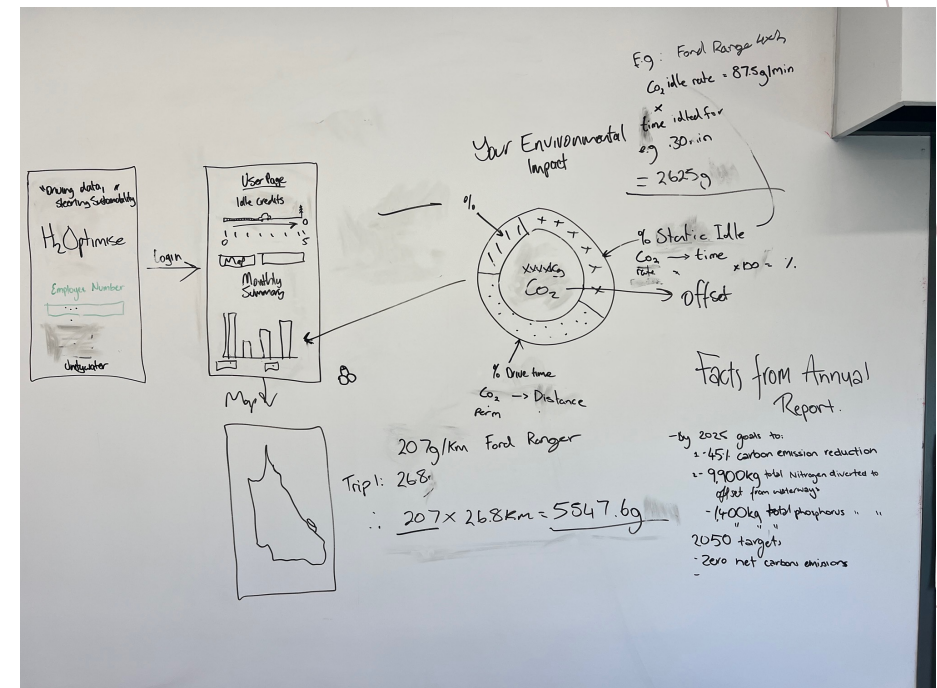 "Driving data,
steering Sustainability"
H2Optimise
Employee Number
Unitywater
Login
User Page
Idle Credits
0
0 5
Map
Monthly
Summary
Map
Your Environmental
Impact
%
xxxxKg
CO2
% Static Idle
CO2 → time
rate x x100 = %
offset
% Drive time
CO2 → Distance
Perm
E.g: Ford Range 4x2
CO2 idle rate = 87.5g/min
x
time idled for
e.g 30min
= 2625g
207g/Km Ford Ranger
Trip 1: 268
∴ 207 × 26.8Km = 5547.6g
Facts from Annual
Report.
-By 2025 goals to:
1 -45% carbon emission reduction
2- 9,900kg total Nitrogen diverted to
offset from waterways
-1,400kg total phosphorus " "
" " "
2050 targets
-Zero net carbon emissions
-